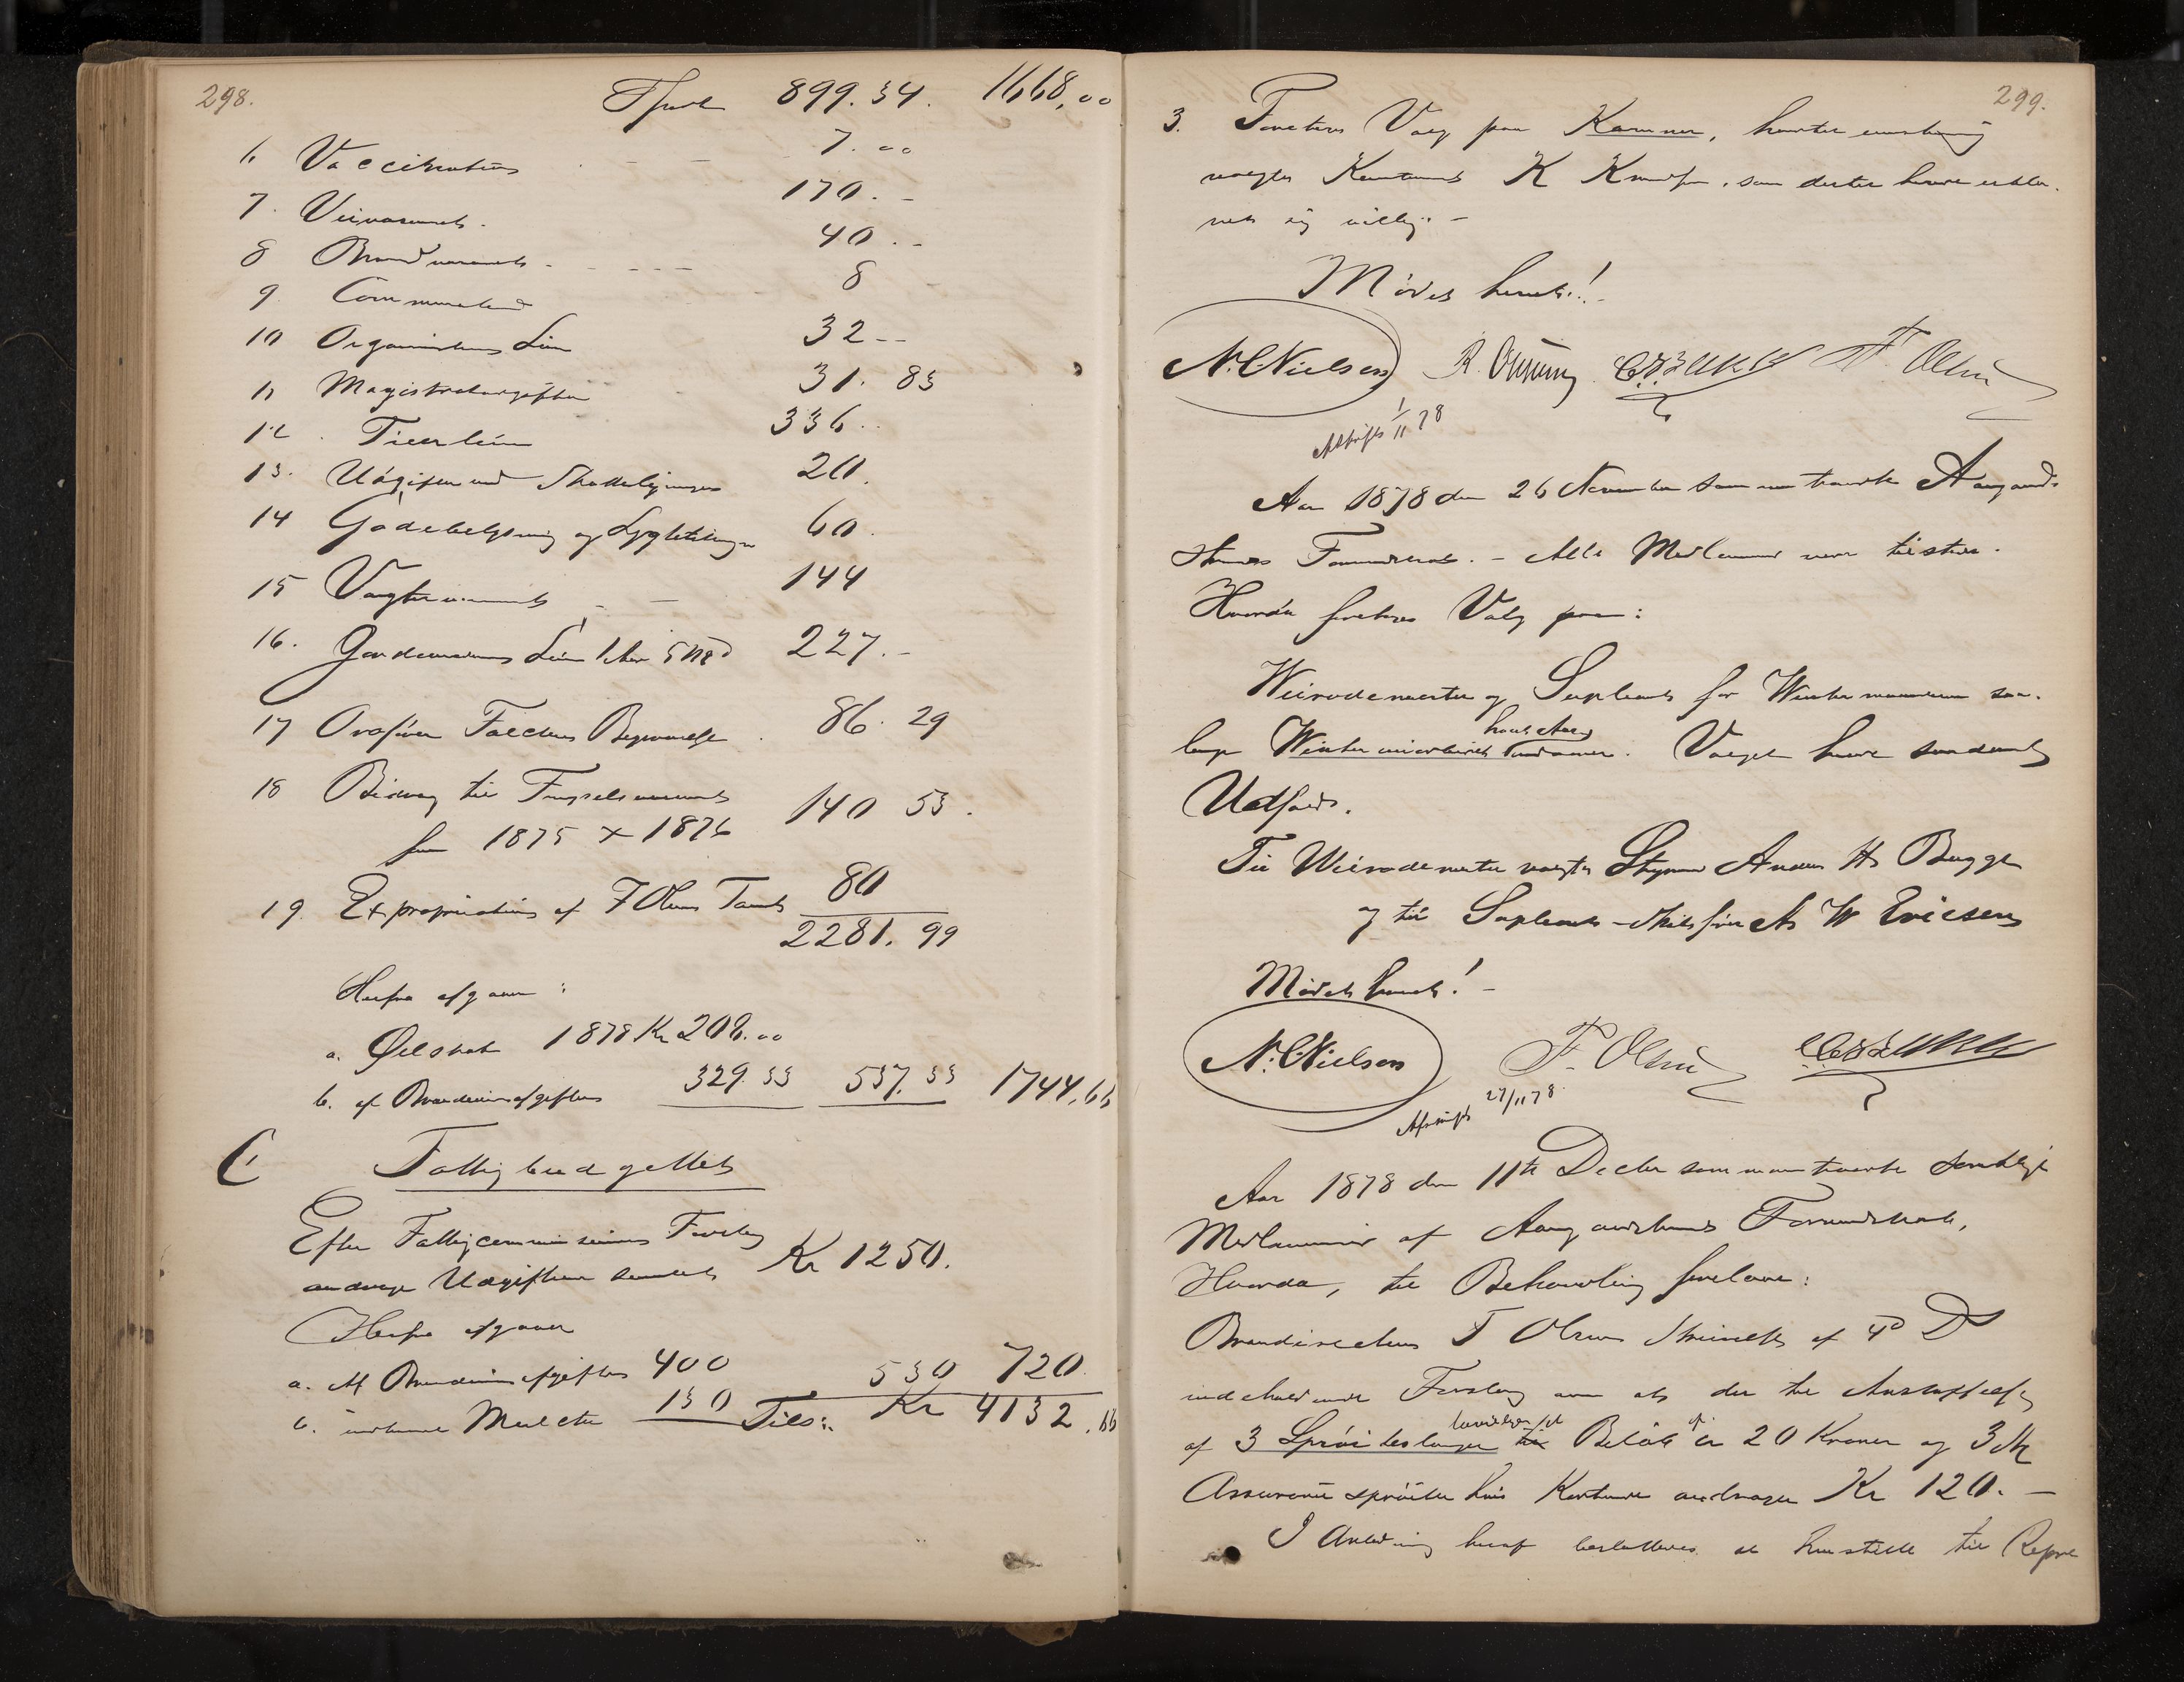 298.
Tfort 899.34. 1668,00
6 Vaccination 7.00
7. Veivæsenet. 170.-
8 Brandvæsenet. 40.-
9 Communelæ 8
10 Organistens Løn 32--
11 Magistratsavgifter 31. 83
12. Ticerløn 336..
13. Udgifter ved Skatteligningen 20.
14 Gadebelysning og Lygtetilsyn 60.
15 Vægtervæsenet 144
16. Løn 227.-
17 Faedens Begravelse 86. 29
18 Bidrag til Fængselsvæsenet
for 1875 + 1876 140 53.
19. Expropriation af F Olsens Tomt 80
2281. 99
Herfra afgaar:
a. Ølskat 1878 Kr 208.00
b. af Brændevinsafgiften 329.33 537.33 1744,66
C. Fattigbudgettet
Efter Fattigcommissionens Forslag
andrage Udgifterne samlet Kr 1250.
Herfra afgaaer
a. Af Brændevinsafgiften 400
b. indkomne Mulcter 130 530 720.
Tils: Kr 4132.66
299.
3. Foretoges Valg paa Kæmner, hvortil eenstemmig
valgtes K Knudsen, som dertil havde erklæ-
ret sig villig. -
Mødet hævet!-
N. C. Nielsen F. Olsen
Afskrift 1/11 78
Aar 1878 den 26 November sammentraadte Aasgaard-
strands Formandskab. - Alle Medlemmer vare tilstede.
Hvorda foretoges Valg paa:
Veirodemester og Supleant for Vintermaanederne saa-
længe Vinterveiarbeidet . Valget havde saadant
Udfald.
Til Weirodemester valgtes Styrmand Anders Hs Bugge
og til Supleant - Skibsfører A W Ericsen
Mødet hævet! -
N. C. Nielsen F. Olsen
Afskrift 27/11 78.
Aar 1878 den 11te Decbr sammentraadte samtlige
Medlemmer af Aasgaardstrands Formandskab,
Hvorda, til Behandling forelaae:
Branddirecteur F Olsens Skrivelse af 4d Ds
indeholdende Forslag om at der til Anskaffelse
af 3 Sprøiteslanger bevilges et Beløb af 20 Kroner og 3 Stk
Assurance sprøiter hvis Kostende andrager Kr 120. -
I Anledning heraf besluttedes at henstille til Repræ